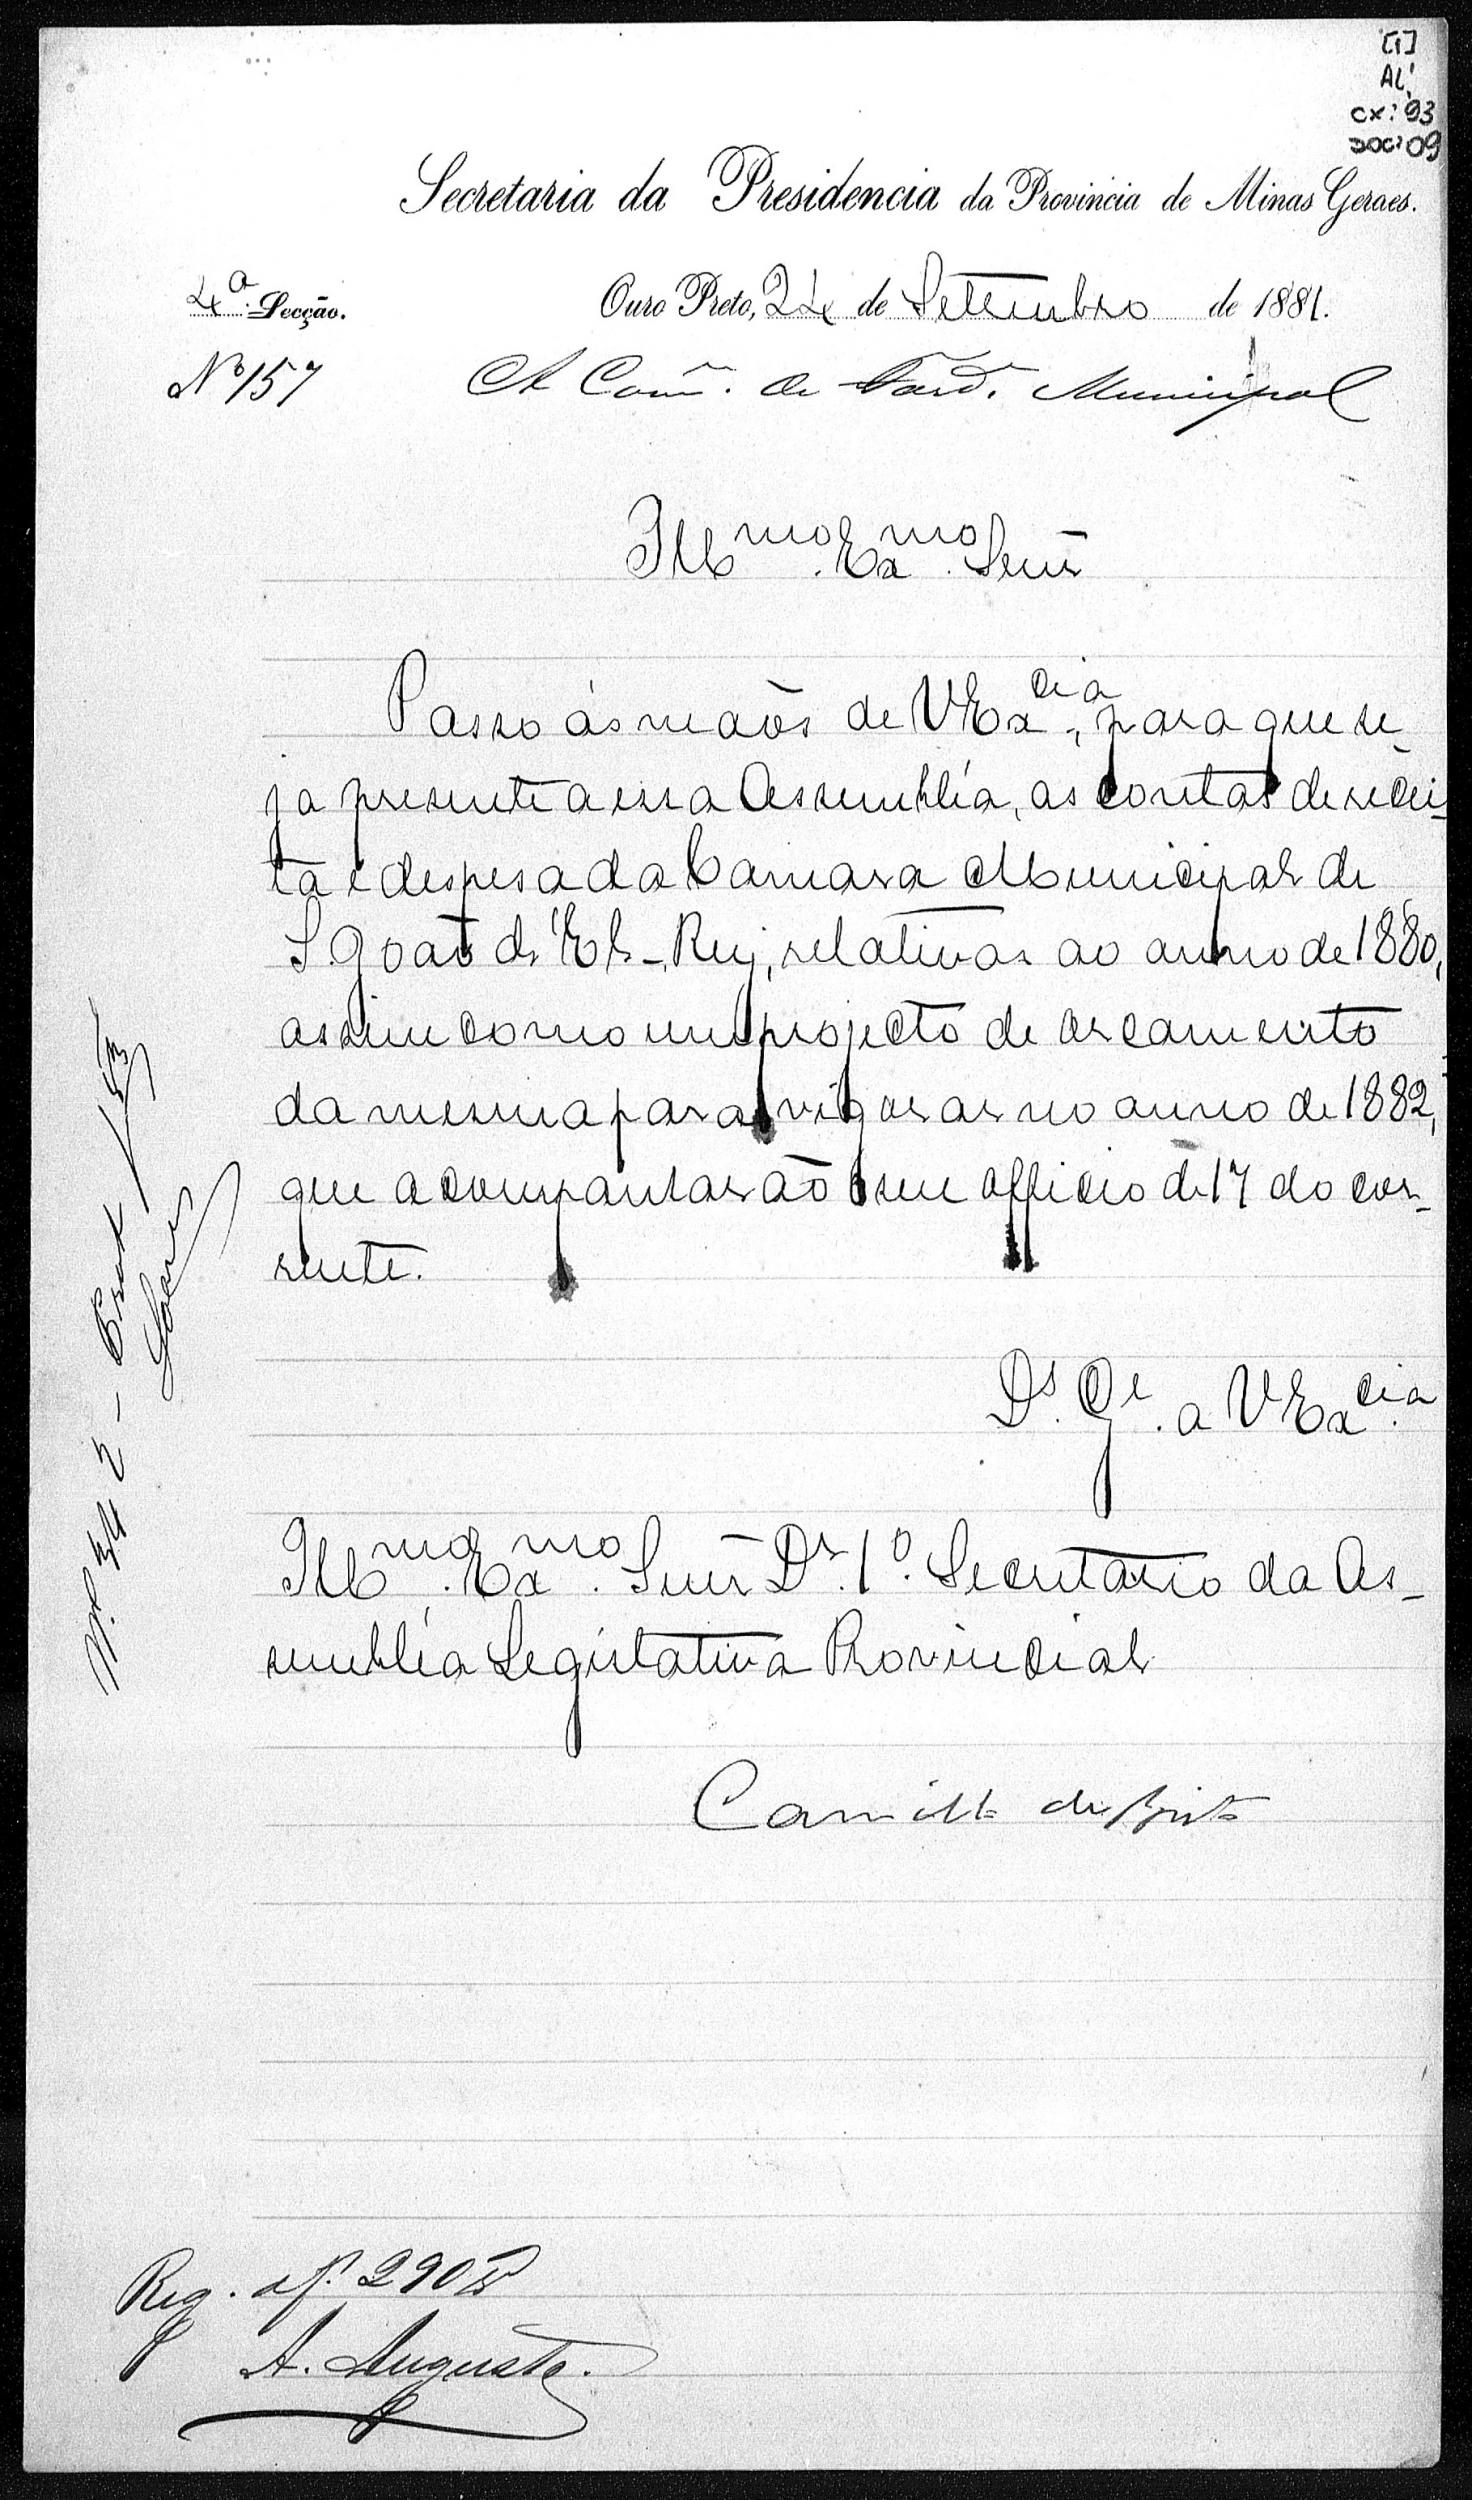 [1]
AL'
cx: 93
doc: 09
Secretaria da Presidencia da Provincia de Minas Geraes.
4ª Secção.
Ouro Preto, 24 de Setembro de 1881.
Nº 157
Á Com. de Fasd. Municipal
Illmo. Exmo. Senr
Passo ás maõs de VExcia., para que se-
ja presente a essa Assembléa, as contas de recei-
ta e despesa da Camara Municipal de
S. Joaõ d'El-Rey, relativas ao anno de 1880,
assim como um projecto de orcamento
da mesma para vigorar no anno de 1882,
que acompanharaõ o seu officio de 17 do cor-
rente.
Ds. Ge. a VExcia.
Illmo. Exmo. Senr Dr. 1º. Secretario da As-
sembléa Legislativa Provincial
Camillo de Brito
Reg. a f. 290
A. Augusto.